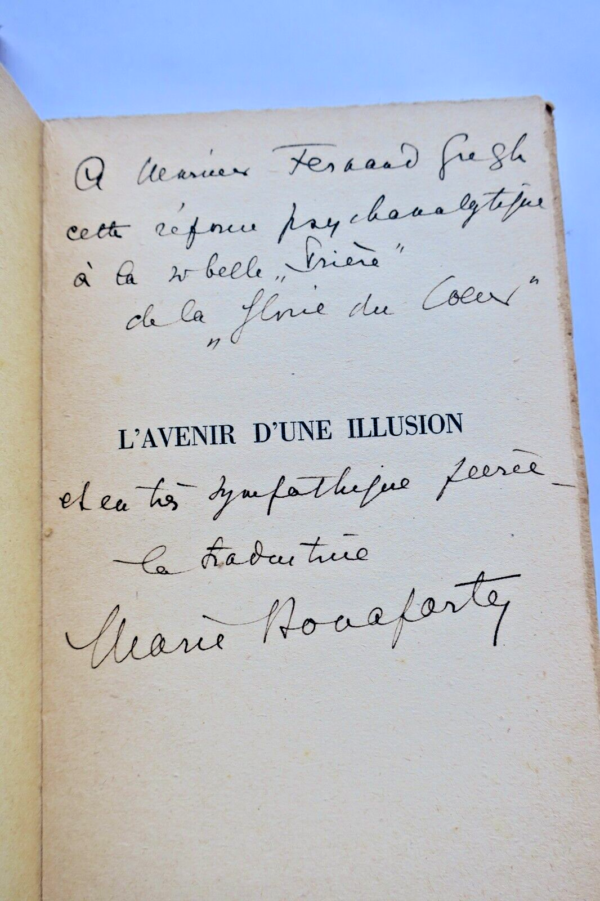 A Monsieur Fernand Gregh
cette réponse psychanalytique
à la si belle „Prière"
de la „Gloire du Coeur"
L'AVENIR D'UNE ILLUSION
et en très sympathique pensée_
la traductrice
Marie Bonaparte